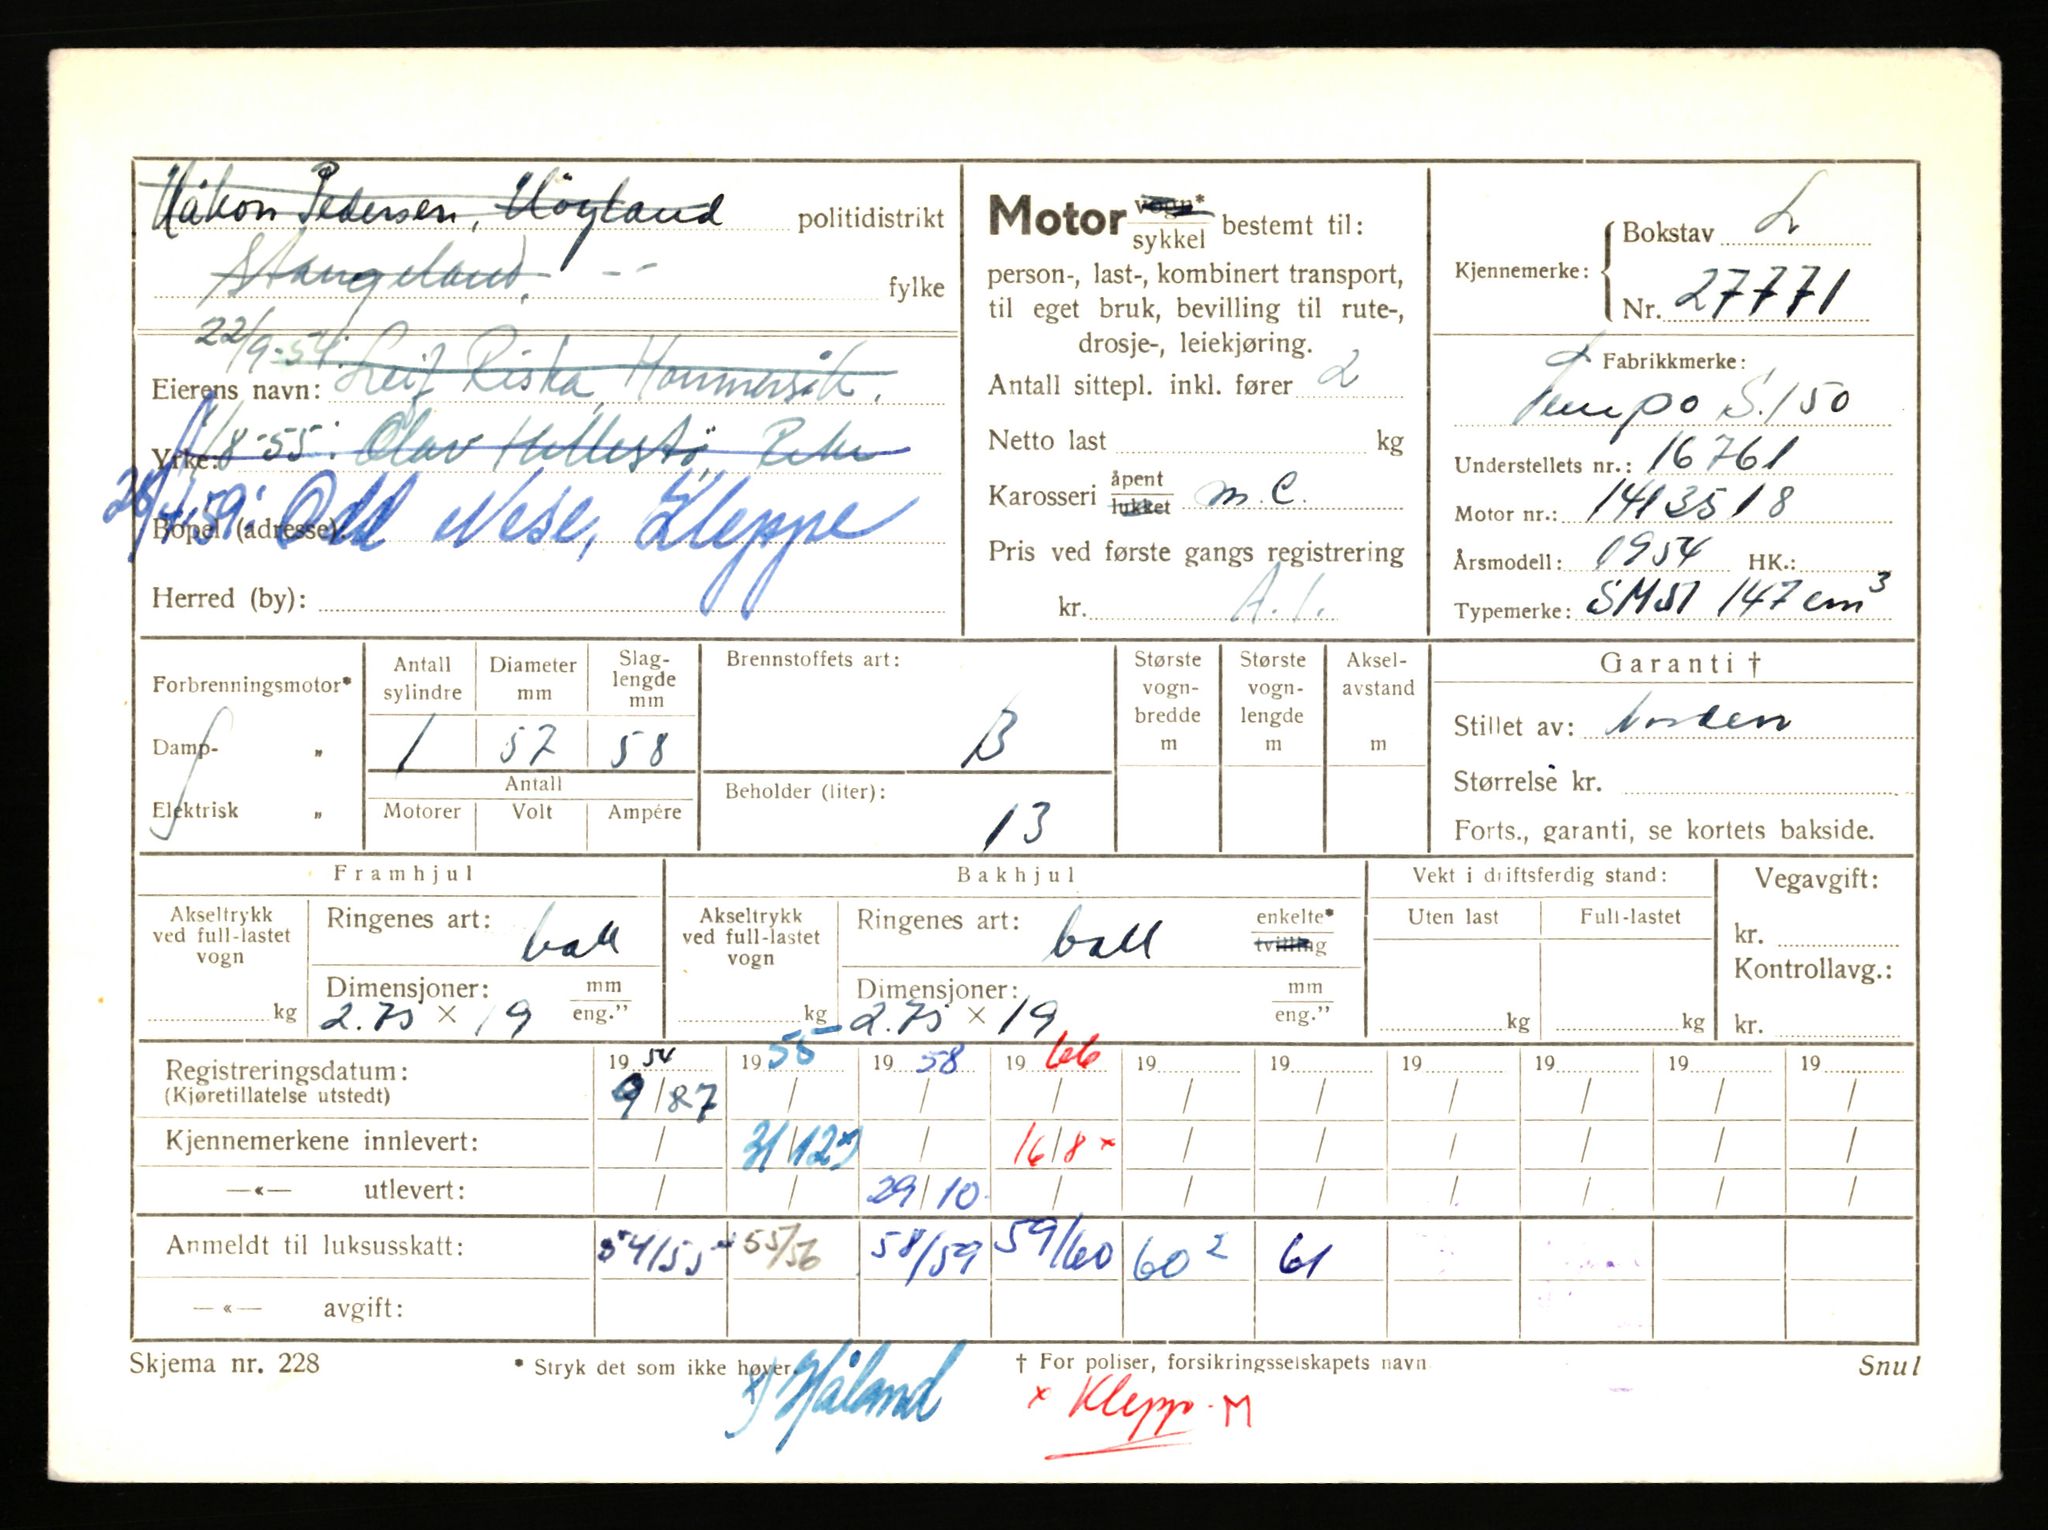 Håkon Pedersen, Høyland politidistrikt
Stangeland, -- fylke
22/9-54: Leif Riska, Hommersåk.
Eierens navn:
Yrke: 1/8-55: Olav Hellestø,
28/4-59: Odd Nese, Kleppe
Bopel (adresse):
Herred (by):
Motor vogn* sykkel bestemt til:
person-, last-, kombinert transport,
til eget bruk, bevilling til rute-,
drosje-, leiekjøring.
Antall sittepl. inkl. fører 2
Netto last kg
Karosseri åpent lukket m.c.
Pris ved første gangs registrering
kr. A.1.
Kjennemerke: Bokstav L
Nr. 27771
Fabrikkmerke:
Tempo S.150
Understellets nr.: 16761
Motor nr.: 1413518
Årsmodell: 1954 HK.:
Typemerke: SMS1 147 cm³
Forbrenningsmotor*
Damp- "
Elektrisk "
Antall sylindre Diameter mm Slag-lengde mm
1 57 58
Antall
Motorer Volt Ampére
Brennstoffets art:
B
Beholder (liter):
13
Største vogn-bredde m
Største vogn-lengde m
Aksel-avstand m
Garanti †
Stillet av: Norden
Størrelse kr.
Forts., garanti, se kortets bakside.
Framhjul
Akseltrykk ved full-lastet vogn kg
Ringenes art: ball
Dimensjoner: mm eng."
2.75 × 19
Bakhjul
Akseltrykk ved full-lastet vogn kg
Ringenes art: ball enkelte* tvilling
Dimensjoner: mm eng."
2.75 × 19
Vekt i driftsferdig stand:
Uten last Full-lastet
kg kg
Vegavgift:
kr.
Kontrollavg.:
kr.
Registreringsdatum: 1954 1955 1958 1966 19 19 19 19 19 19
(Kjøretillatelse utstedt) 9/87 / / / / / / / / /
Kjennemerkene innlevert: / 31/12 x) / 16/8 x / / / / / /
—«— utlevert: / / 29/10 / / / / / / /
Anmeldt til luksusskatt: 54/55 55/56 58/59 59/60 60² 61
—«— avgift:
Skjema nr. 228 * Stryk det som ikke høver. † For poliser, forsikringsselskapets navn Snul
x) Håland x Klepp. M